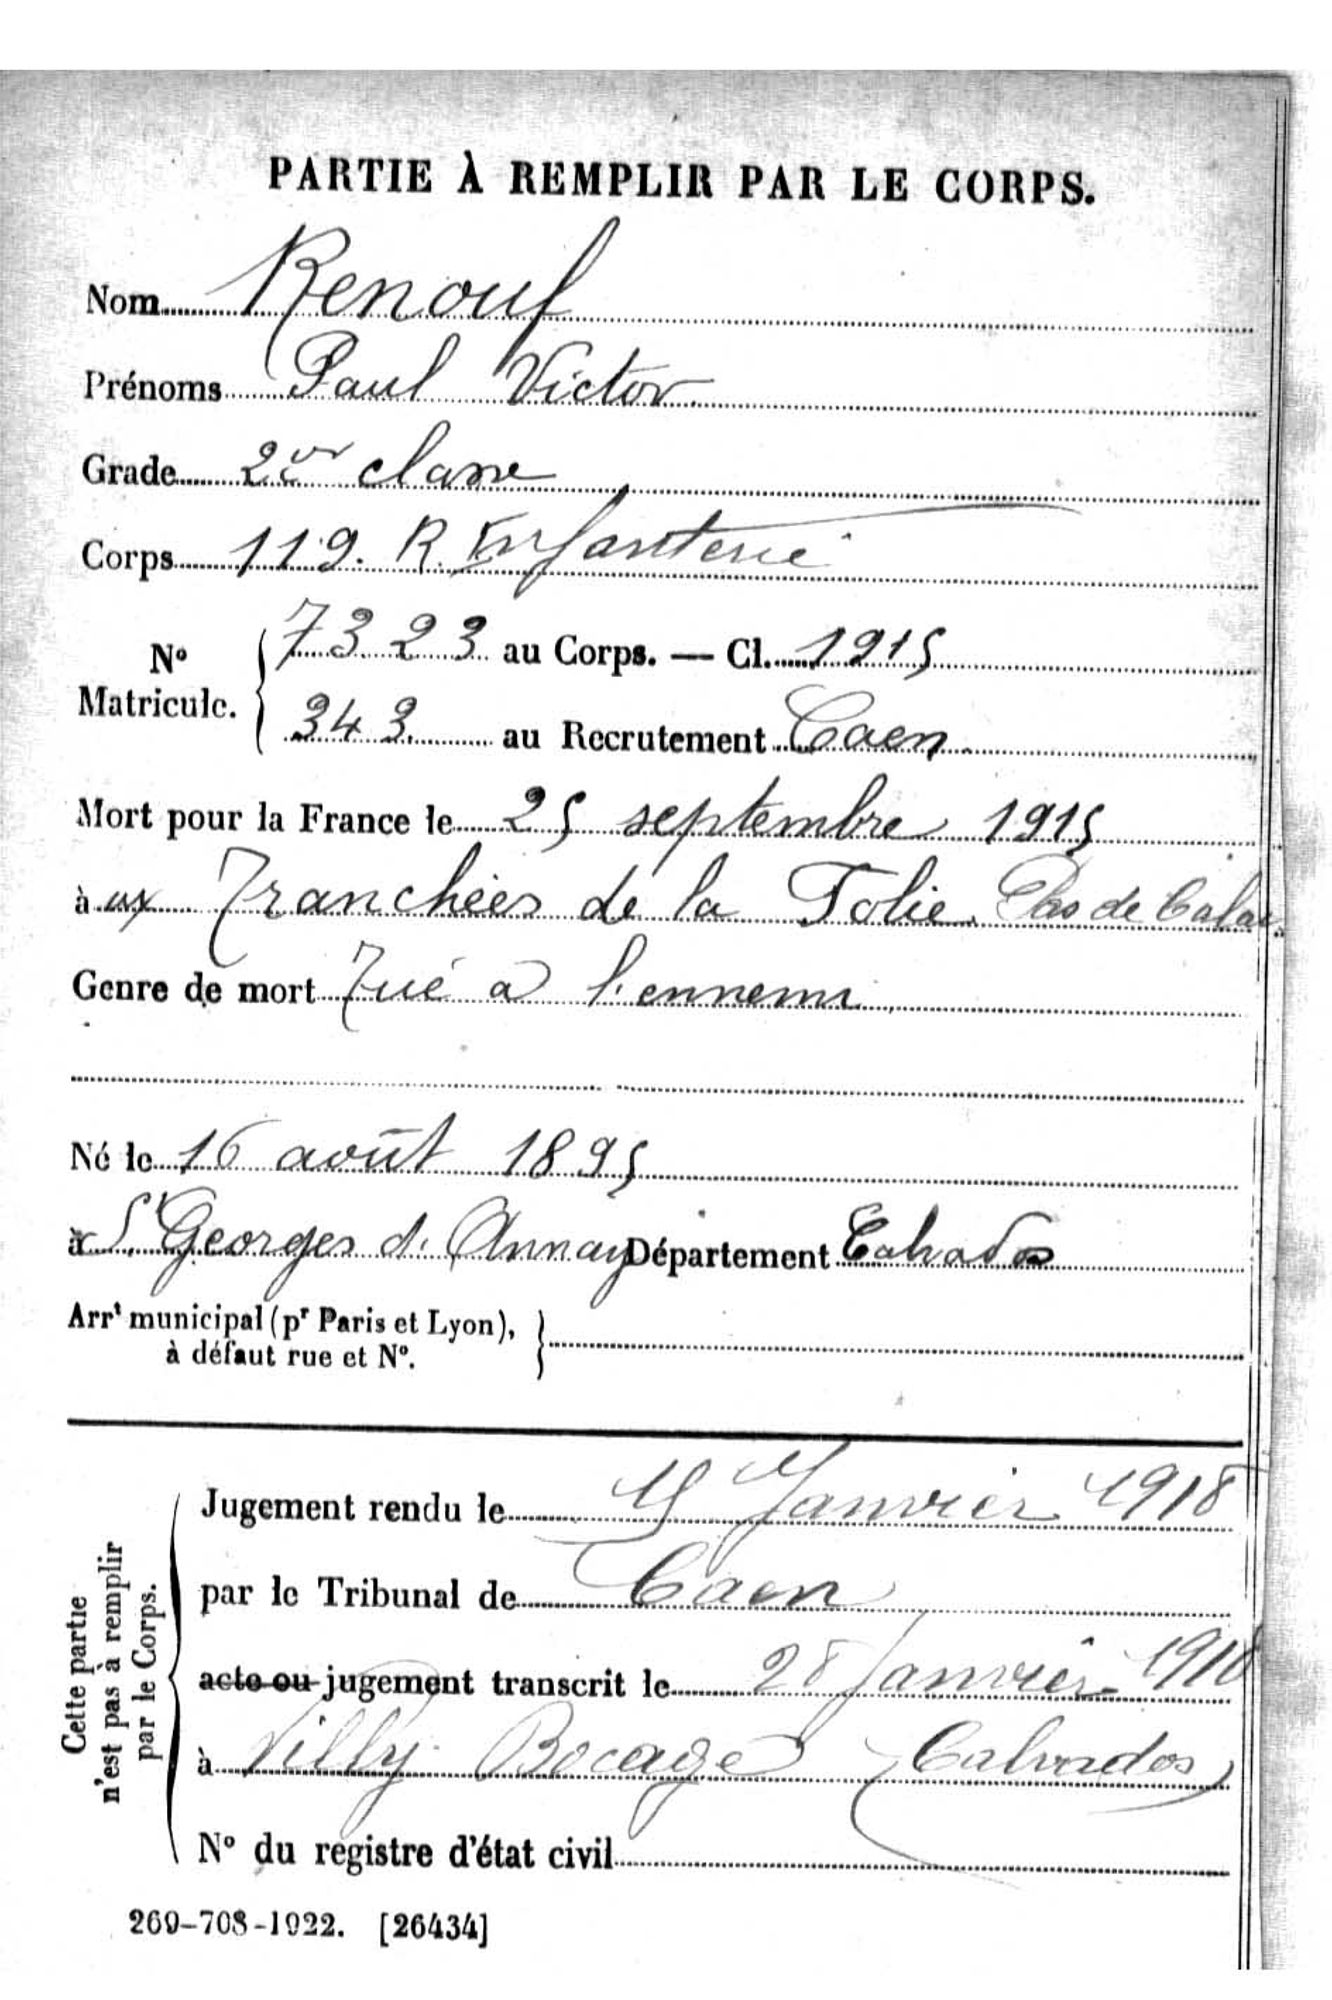 PARTIE À REMPLIR PAR LE CORPS.
Nom Renouf
Prénoms Paul Victor
Grade 2e classe
Corps 119. R. Infanterie
7323 au Corps. — Cl. 1915
No
Matricule.
343 au Recrutement Caen
Mort pour la France le 25 septembre 1915
à ux Tranchées de la Folie. Pas de Calais.
Genre de mort Tué a l'ennemi
Né le 16 août 1895
à St Georges d'Aunay Département Calvados
Arrt municipal (pr Paris et Lyon),
à défaut rue et No.
Cette partie
n'est pas à remplir
par le Corps.
Jugement rendu le Janvier 1918
par le Tribunal de Caen
acte ou jugement transcrit le 28 Janvier 1918
à Villy Bocage (Calvados)
No du registre d'état civil
269-708-1922. [26434]